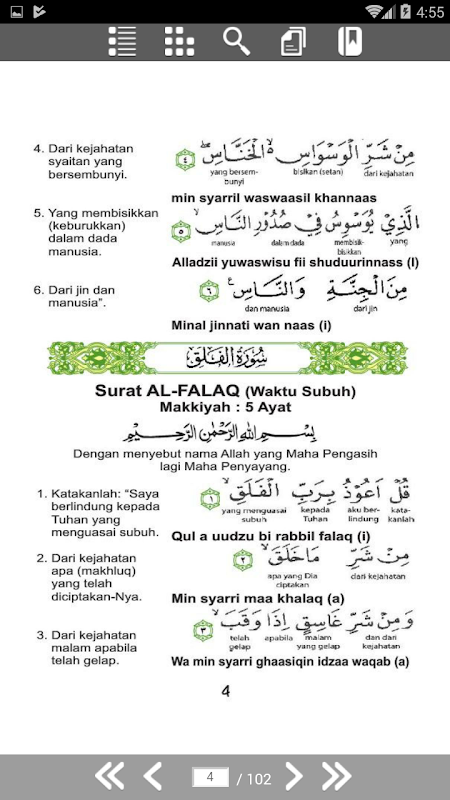 4:55
4. Dari kejahatan
syaitan yang
bersembunyi.
مِنْ شَرِّ الْوَسْوَاسِ ەۙ الْخَنَّاسِۖ ٤
yang bersem-
bunyi
bisikan (setan)
dari kejahatan
min syarril waswaasil khannaas
5. Yang membisikkan
(keburukkan)
dalam dada
manusia.
الَّذِيْ يُوَسْوِسُ فِيْ صُدُوْرِ النَّاسِۙ ٥
manusia
dalam dada
membisik-
bisikkan
yang
Alladzii yuwaswisu fii shuduurinnass (I)
6. Dari jin dan
manusia”.
مِنَ الْجِنَّةِ وَالنَّاسِ ࣖ ٦
dan manusia
dari jin
Minal jinnati wan naas (i)
سُوْرَةُ الْفَلَقِ
Surat AL-FALAQ (Waktu Subuh)
Makkiyah : 5 Ayat
بِسْمِ اللهِ الرَّحْمٰنِ الرَّحِيْمِ
Dengan menyebut nama Allah yang Maha Pengasih
lagi Maha Penyayang.
1. Katakanlah: “Saya
berlindung kepada
Tuhan yang
menguasai subuh.
قُلْ اَعُوْذُ بِرَبِّ الْفَلَقِۙ ١
yang menguasai
subuh
kepada
Tuhan
aku ber-
lindung
kata-
kanlah
Qul a uudzu bi rabbil falaq (i)
2. Dari kejahatan
apa (makhluq)
yang telah
diciptakan-Nya.
مِنْ شَرِّ مَا خَلَقَۙ ٢
apa yang Dia
ciptakan
dari kejahatan
Min syarri maa khalaq (a)
3. Dari kejahatan
malam apabila
telah gelap.
وَمِنْ شَرِّ غَاسِقٍ اِذَا وَقَبَۙ ٣
telah
gelap
apabila
malam
yang gelap
dan dari
kejahatan
Wa min syarri ghaasiqin idzaa waqab (a)
4
4 / 102